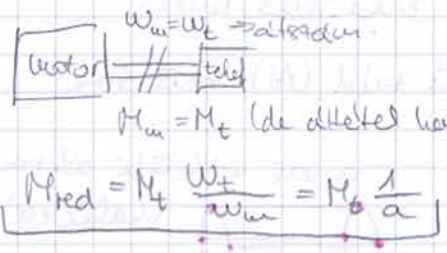 ω_m = ω_t →
motor teher
M_m = M_t (de áttétel ha
M_red = M_t ω_t/ω_m = M_t 1/a